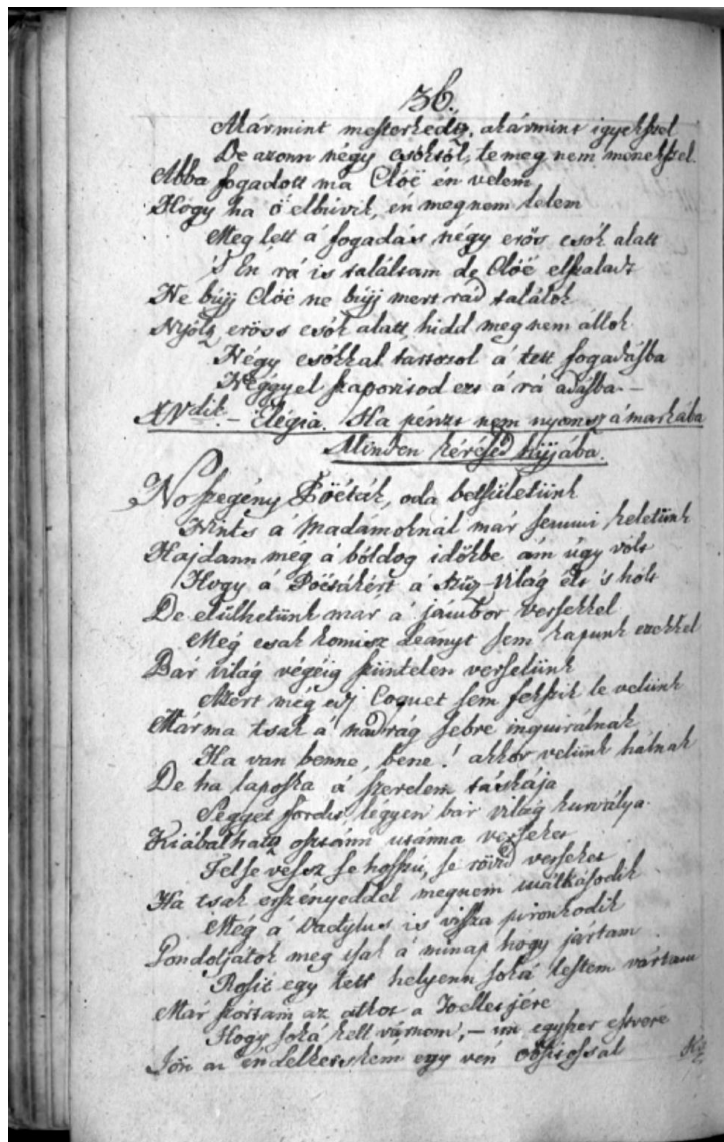 36.
Akármint mesterkedsz, akármint igyekszel
De azonn négy csóktól, te meg nem menekszel.
Abba fogadott ma Clöë én velem
Hogy ha ő elbúvik, én megnem lelem
Meg lett á fogadás négy erőss csók alatt
's Én rá is találtam de Clöë elszaladt
Ne bújj Clöë ne búјj mert rád találok
Nyóltz erőss csók alatt hidd meg nem állok
Négy csókkal tartozol á tett fogadásba
Néggyel szaporitod ezt á rá adásba. –
XVdik – Elégia. Ha pénzt nem nyomsz á markába
Minden kérésed hijjába.
No szegény Pöéták, oda betsületünk
Nints á Madámoknál már semmi keletünk
Hajdann meg á bóldog időkbe ám úgy vólt
Hogy á Pöétákért á Szűz-Világ élt 's holt
De elülhetünk mar á jámbor versekkel
Még csak komisz Leanyt sem kapunk ezekkel
Bár világ végéig szüntelen verselünk
Azért még egy Coquet sem fekszik le velünk
Már ma tsak á nadrág sebre inquirálnak
Ha van benne, bene! akkor velünk hálnak
De ha laposka á szerelem táskája
Segget fordit légyen bár világ kurvája.
Kiábálhatz osztánn utánna verseket
Felse vesz se hosszú, se rövid verseket
Ha tsak erszényeddel megnem
Még á Dactylus is vissza pironkodik
Gondoljátok meg tsak á minap hogy jártam
Rosit egy tett helyenn soká lestem vártam
Már szórtam az átkot a
Hogy soká kell várnom, – im egyszer estvére
Jön az én Lelketském egy vén